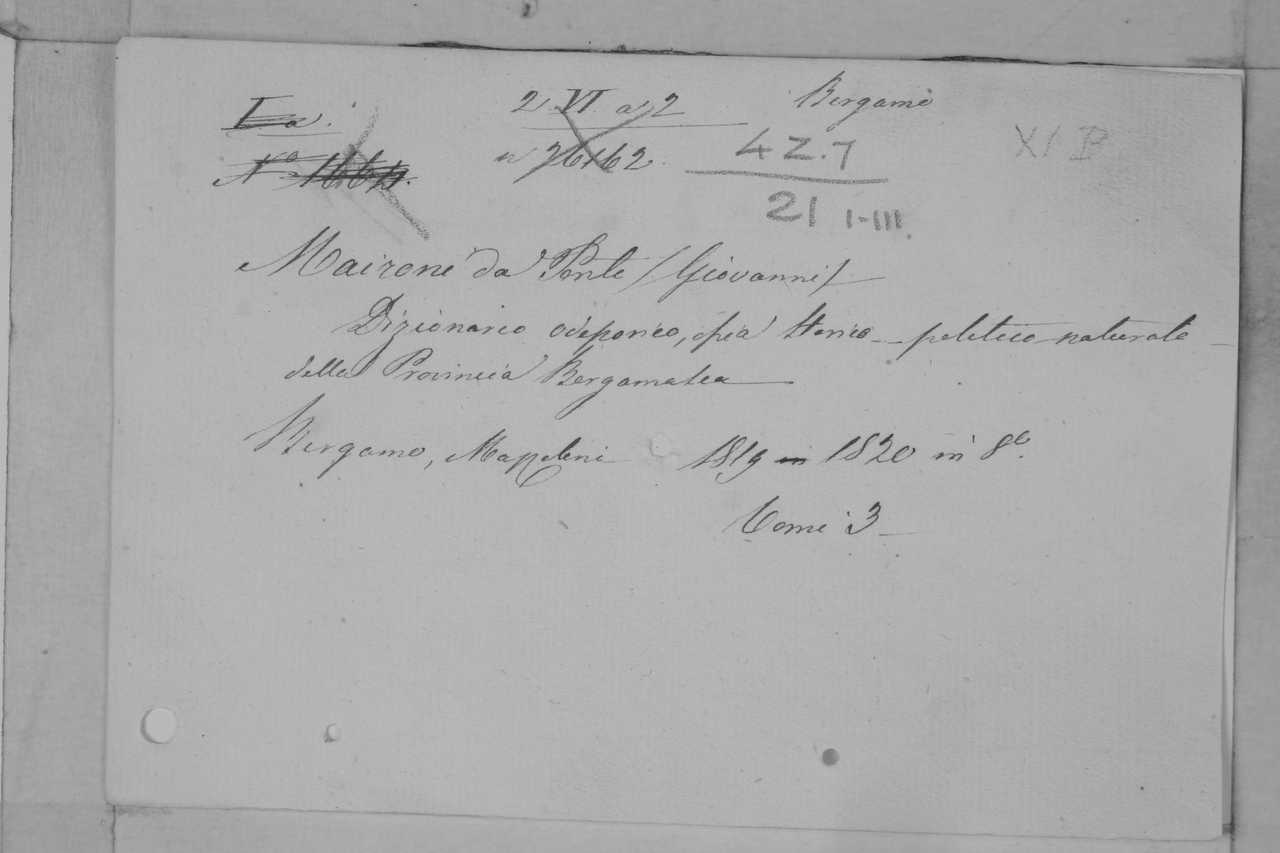 I a.
2. VI. a 2
Bergamo
XI B
No
n 26162.
4 Z. 7
21 I-III.
Maironi da Ponte / Giovanni /
Dizionario odeporico, osia storico - politico - naturale
della Provincia Bergamasca
Bergamo, Mazzoleni 1819 1820 in 8o.
Tomi 3